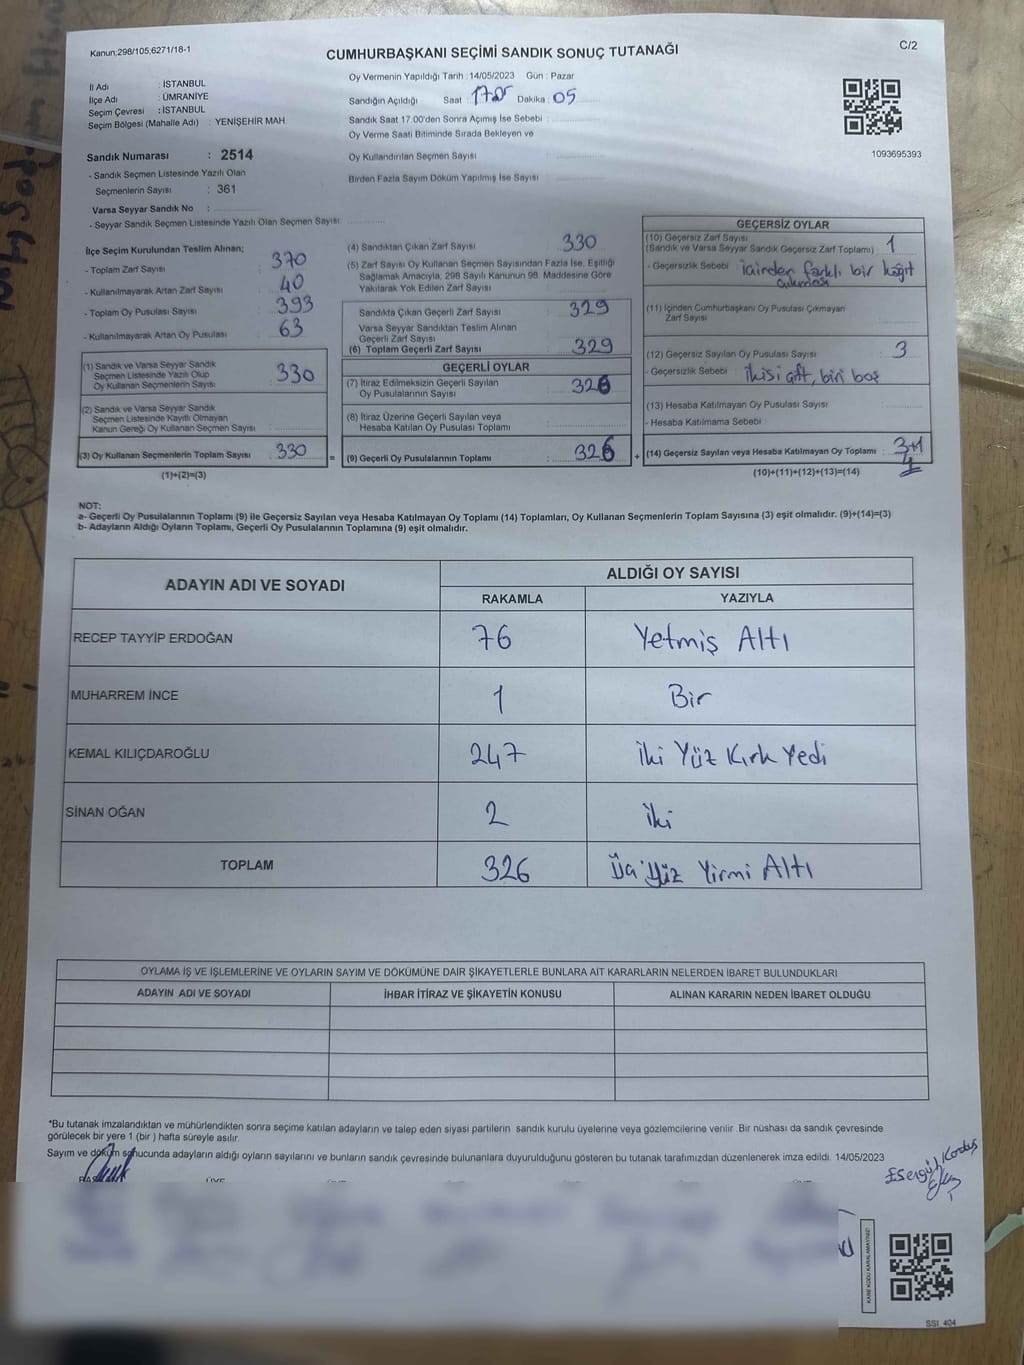 Kanun;298/105;6271/18-1
C/2
CUMHURBAŞKANI SEÇİMİ SANDIK SONUÇ TUTANAĞI
İl Adı : İSTANBUL
İlçe Adı : ÜMRANİYE
Seçim Çevresi : İSTANBUL
Seçim Bölgesi (Mahalle Adı) : YENİŞEHİR MAH.
Sandık Numarası : 2514
- Sandık Seçmen Listesinde Yazılı Olan
Seçmenlerin Sayısı : 361
Varsa Seyyar Sandık No :
- Seyyar Sandık Seçmen Listesinde Yazılı Olan Seçmen Sayısı:
Oy Vermenin Yapıldığı Tarih :14/05/2023 Gün : Pazar
Sandığın Açıldığı Saat : Dakika : 05
Sandık Saat 17.00'den Sonra Açımış İse Sebebi :
Oy Verme Saati Bitiminde Sırada Bekleyen ve
Oy Kullandırılan Seçmen Sayısı :
Birden Fazla Sayım Döküm Yapılmış İse Sayısı :
1093695393
İlçe Seçim Kurulundan Teslim Alınan;
- Toplam Zarf Sayısı : 370
- Kullanılmayarak Artan Zarf Sayısı : 40
- Toplam Oy Pusulası Sayısı : 393
- Kullanılmayarak Artan Oy Pusulası : 63
(1) Sandık ve Varsa Seyyar Sandık
Seçmen Listesinde Yazılı Olup
Oy Kullanan Seçmenlerin Sayısı : 330
(2) Sandık ve Varsa Seyyar Sandık
Seçmen Listesinde Kayıtlı Olmayan
Kanun Gereği Oy Kullanan Seçmen Sayısı :
(3) Oy Kullanan Seçmenlerin Toplam Sayısı : 330
(1)+(2)=(3)
(4) Sandıktan Çıkan Zarf Sayısı : 330
(5) Zarf Sayısı Oy Kullanan Seçmen Sayısından Fazla İse, Eşitliği
Sağlamak Amacıyla, 298 Sayılı Kanunun 98. Maddesine Göre
Yakılarak Yok Edilen Zarf Sayısı :
Sandıkta Çıkan Geçerli Zarf Sayısı : 329
Varsa Seyyar Sandıktan Teslim Alınan
Geçerli Zarf Sayısı :
(6) Toplam Geçerli Zarf Sayısı : 329
GEÇERLİ OYLAR
(7) İtiraz Edilmeksizin Geçerli Sayılan
Oy Pusulalarının Sayısı : 326
(8) İtiraz Üzerine Geçerli Sayılan veya
Hesaba Katılan Oy Pusulası Toplamı :
= (9) Geçerli Oy Pusulalarının Toplamı : 326
GEÇERSİZ OYLAR
(10) Geçersiz Zarf Sayısı
(Sandık ve Varsa Seyyar Sandık Geçersiz Zarf Toplamı) : 1
- Geçersizlik Sebebi : içinden farklı bir kağıt
çıkması
(11) İçinden Cumhurbaşkanı Oy Pusulası Çıkmayan
Zarf Sayısı :
(12) Geçersiz Sayılan Oy Pusulası Sayısı : 3
- Geçersizlik Sebebi : ikisi çift, biri boş
(13) Hesaba Katılmayan Oy Pusulası Sayısı :
- Hesaba Katılmama Sebebi :
+ (14) Geçersiz Sayılan veya Hesaba Katılmayan Oy Toplamı : 3+1
4
(10)+(11)+(12)+(13)=(14)
NOT:
a- Geçerli Oy Pusulalarının Toplamı (9) ile Geçersiz Sayılan veya Hesaba Katılmayan Oy Toplamı (14) Toplamları, Oy Kullanan Seçmenlerin Toplam Sayısına (3) eşit olmalıdır. (9)+(14)=(3)
b- Adayların Aldığı Oyların Toplamı, Geçerli Oy Pusulalarının Toplamına (9) eşit olmalıdır.
ADAYIN ADI VE SOYADI ALDIĞI OY SAYISI
RAKAMLA YAZIYLA
RECEP TAYYİP ERDOĞAN 76 Yetmiş Altı
MUHARREM İNCE 1 Bir
KEMAL KILIÇDAROĞLU 247 İki Yüz Kırk Yedi
SİNAN OĞAN 2 İki
TOPLAM 326 Üç Yüz Yirmi Altı
OYLAMA İŞ VE İŞLEMLERİNE VE OYLARIN SAYIM VE DÖKÜMÜNE DAİR ŞİKAYETLERLE BUNLARA AİT KARARLARIN NELERDEN İBARET BULUNDUKLARI
ADAYIN ADI VE SOYADI İHBAR İTİRAZ VE ŞİKAYETİN KONUSU ALINAN KARARIN NEDEN İBARET OLDUĞU
*Bu tutanak imzalandıktan ve mühürlendikten sonra seçime katılan adayların ve talep eden siyasi partilerin sandık kurulu üyelerine veya gözlemcilerine verilir .Bir nüshası da sandık çevresinde
görülecek bir yere 1 (bir ) hafta süreyle asılır.
Sayım ve döküm sonucunda adayların aldığı oyların sayılarını ve bunların sandık çevresinde bulunanlara duyurulduğunu gösteren bu tutanak tarafımızdan düzenlenerek imza edildi. 14/05/2023
KARE KODU KARALAMAYINIZ!
SSİ_404